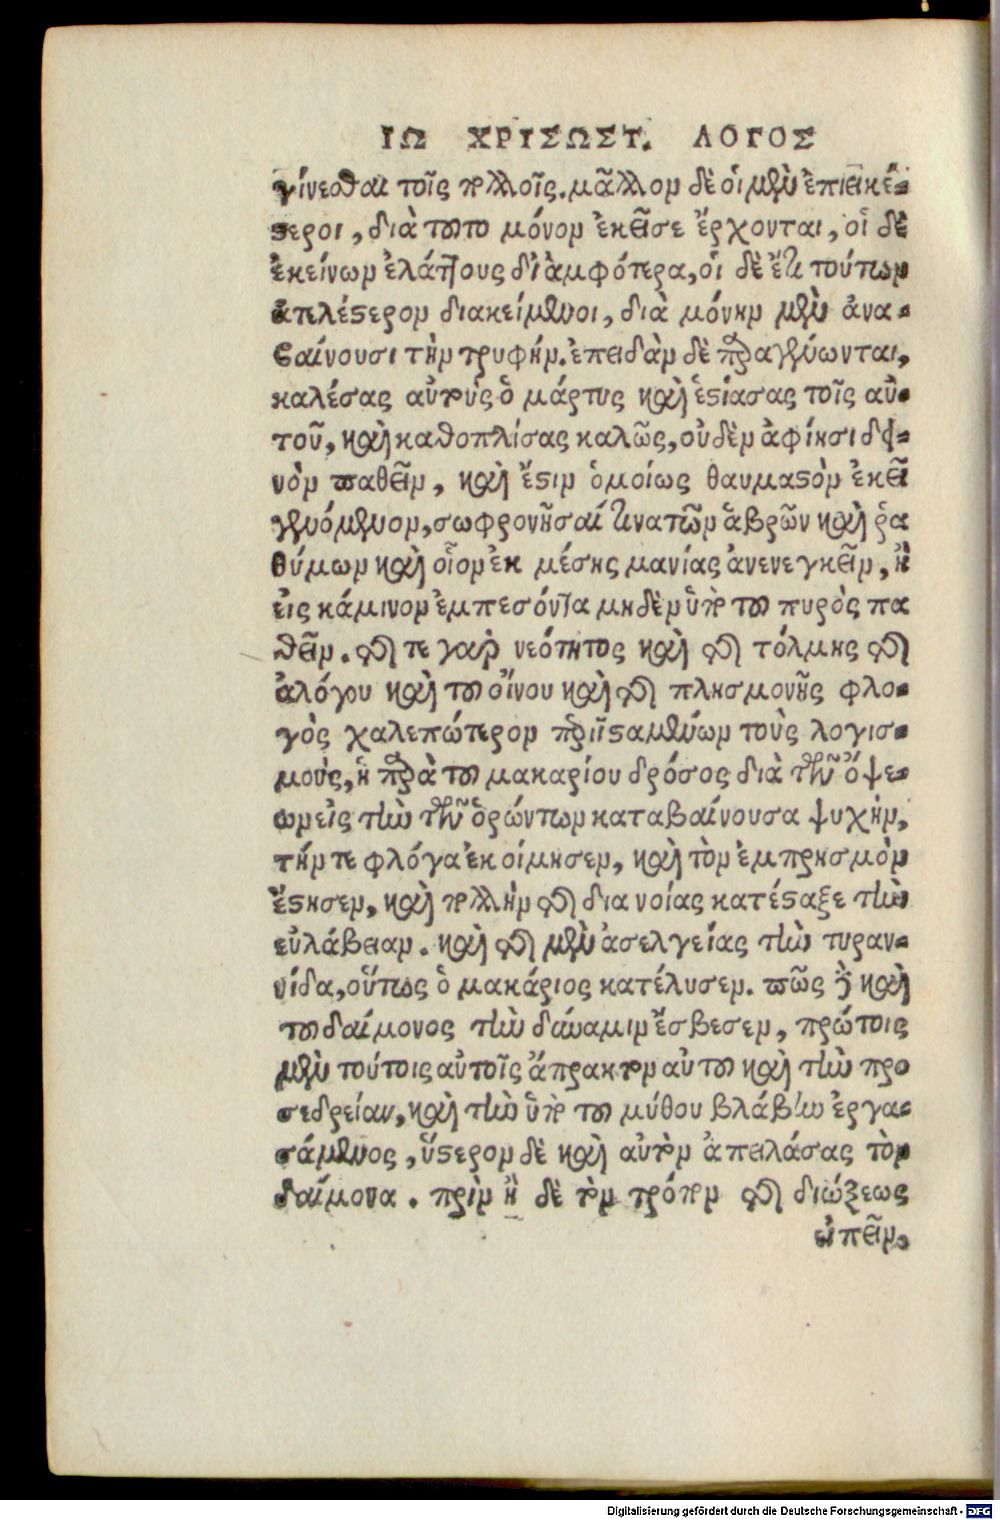 ΙΩ ΧΡΙΣΩΣΤ. ΛΟΓΟΣ
γίνεσθαι τοῖς πολλοῖς. μᾶλλον δὲ οἱ μὲν ἐπιεικέ-
στεροι, διὰ τοῦτο μόνον ἐκεῖσε ἔρχονται, οἱ δὲ
ἐκείνων ἐλάττους δι᾽ ἀμφότερα, οἱ δὲ ἔτι τούτων
ἀτελέστερον διακείμενοι, διὰ μόνην μὲν ἀνα-
βαίνουσι τὴν τρυφήν. ἐπειδὰν δὲ παραγένωνται,
καλέσας αὐτοὺς ὁ μάρτυς καὶ ἑστιάσας τοῖς αὐ-
τοῦ, καὶ καθοπλίσας καλῶς, οὐδὲν ἀφίησι δει-
νὸν παθεῖν, καὶ ἔστιν ὁμοίως θαυμαστὸν ἐκεῖ
γενόμενον, σωφρονῆσαί τινα τῶν ἁβρῶν καὶ ῥα
θύμων καὶ οἷον ἐκ μέσης μανίας ἀνενεγκεῖν, ἢ
εἰς κάμινον ἐμπεσόντα μηδὲν ὑπὸ τοῦ πυρὸς πα
θεῖν. τῆς τε γὰρ νεότητος καὶ τῆς τόλμης τῆς
ἀλόγου καὶ τοῦ οἴνου καὶ τῆς πλησμονῆς φλο-
γὸς χαλεπώτερον περιϊσταμένων τοὺς λογισ-
μοὺς, ἡ παρὰ τοῦ μακαρίου δρόσος διὰ τῶν ὄψε-
ων εἰς τὴν τῶν ὁρώντων καταβαίνουσα ψυχὴν,
τήν τε φλόγα ἐκοίμησεν, καὶ τὸν ἐμπρησμὸν
ἔστησεν, καὶ πολλὴν τῆς διανοίας κατέσταξε τὴν
εὐλάβειαν. καὶ τῆς μὲν ἀσελγείας τὴν τυραν-
νίδα, οὕτως ὁ μακάριος κατέλυσεν. πῶς δὲ καὶ
τοῦ δαίμονος τὴν δύναμιν ἔσβεσεν, πρώτοις
μὲν τούτοις αὐτοῖς ἄπρακτον αὐτοῦ καὶ τὴν προ
σεδρείαν, καὶ τὴν ὑπὸ τοῦ μύθου βλάβην ἐργα-
σάμενος, ὕστερον δὲ καὶ αὐτὸν ἀπελάσας τὸν
δαίμονα. πρὶν ἢ δὲ τὸν τρόπον τῆς διώξεως
εἰπεῖν.
Digitalisierung gefördert durch die Deutsche Forschungsgemeinschaft - DFG